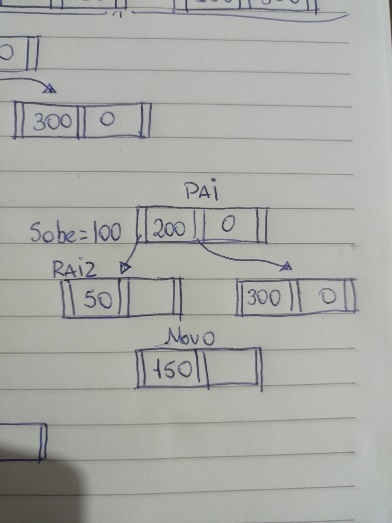 0
300 0
PAI
Sobe=100 200 0
RAIZ
50 300 0
NOVO
150